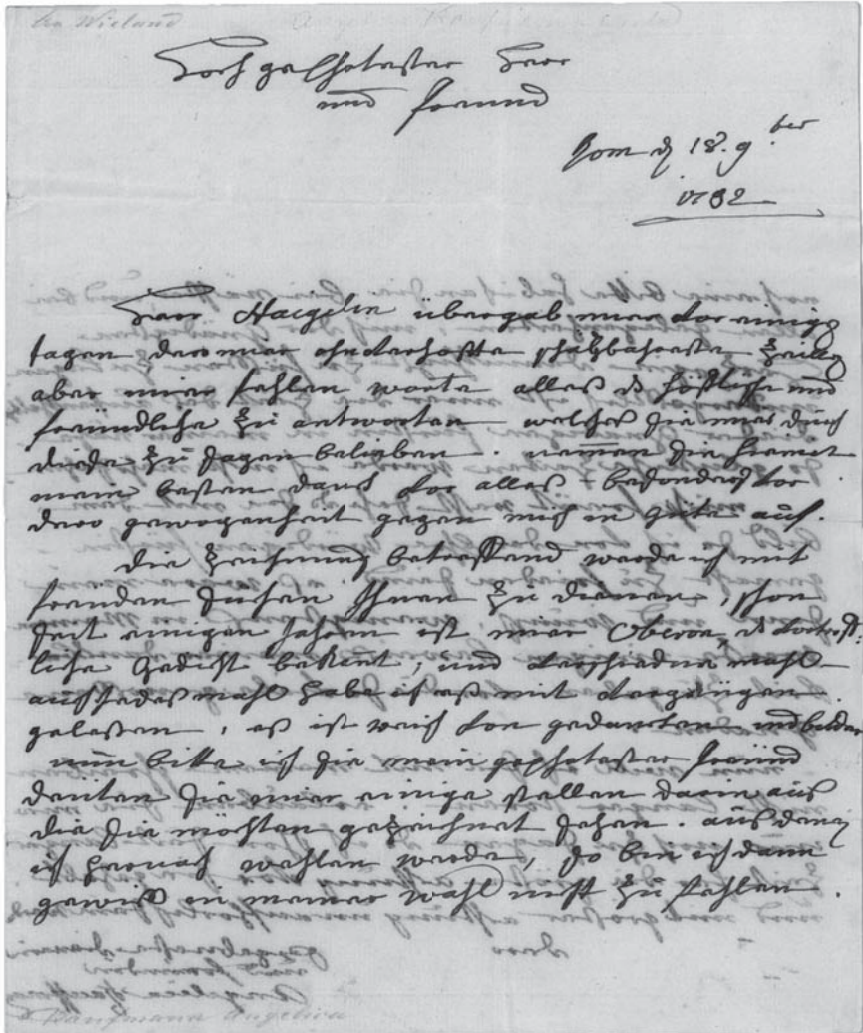 An Wieland
Hochgeschätester Herr
und freund
Rom d 18. 9ber
1792
Herr Haegelin übergab mier vor einig
tagen dero mier ohnverhoffte schäzbahreste Zeilen
aber mier fehlen worte alles d höfliche und
freündliche zu antworten welches Sie mier durch
diese zu sagen belieben. nemmen Sie hiemit
mein besten danck vor alles - besonders vor
dero gewogenheit gegen mich in güte auf.
die Zeichnung betreffend werde ich mit
freuden suchen Ihnen zu dienen, schon
seit einigen Jahren ist mier Oberon, d vortreff-
liche Gedicht bekant, und verschiedne mahl
auf jedes mahl habe ich es mit vergnügen
gelessen, es ist reich von gedancken und bilder
nun bitte ich Sie mein geschätester freünd
deüten Sie mier einige stellen darin aus
die Sie möchten gezeichnet sehen. aus denen
ich hernach wehlen werde, so bin ich dann
gewiss in meiner wahl nicht zu fehlen.
Kaufmann Angelica